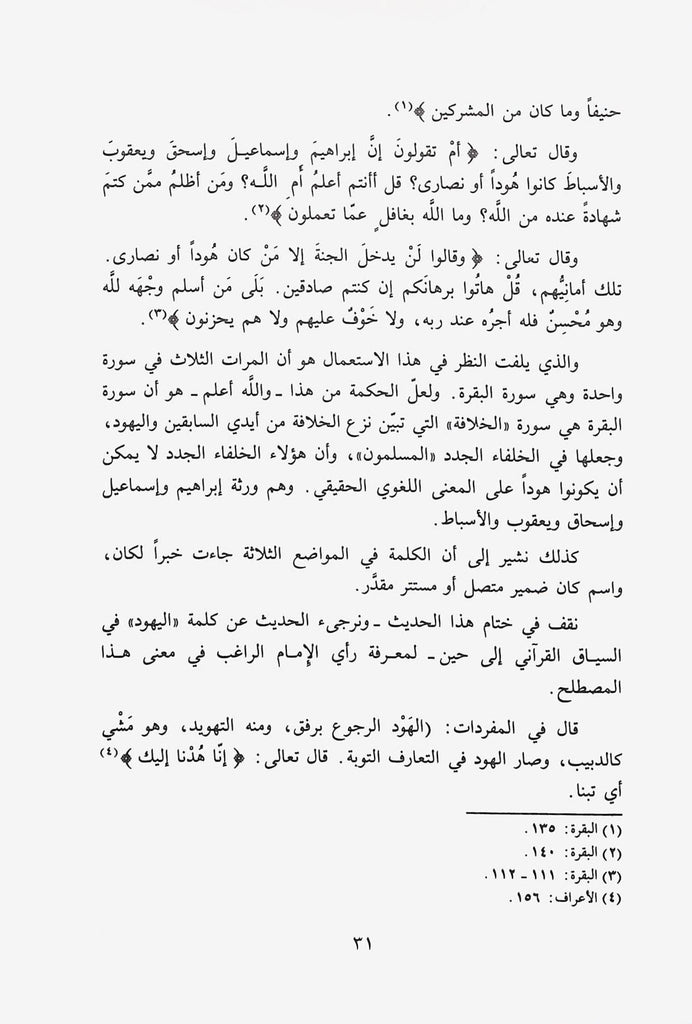 حنيفاً وما كان من المشركين ﴾(١).
وقال تعالى: ﴿ أمْ تقولونَ إنَّ إبراهيمَ وإسماعيـلَ وإسحقَ ويعقوبَ
والأسباطَ كانوا هُوداً أو نصارى؟ قل أأنتم أعلمُ أَم ِ اللَّـه؟ ومَن أظلمُ ممَّن كتمَ
شهادةً عنده من اللَّه؟ وما اللَّه بغافلٍ عمّا تعملون ﴾(٢).
وقال تعالى: ﴿ وقالوا لَنْ يدخلَ الجنةَ إلا مَنْ كان هُوداً أو نصارى.
تلك أمانِيُّهم، قُلْ هاتُوا برهانَكم إن كنتم صادقين. بَلَى مَن أسلم وجْهَه للَّه
وهو مُحْسِنٌ فله أجرُه عند ربه، ولا خَوْفٌ عليهم ولا هم يحزنون ﴾(٣).
والذي يلفت النظر في هذا الاستعمال هو أن المرات الثلاث في سورة
واحدة وهي سورة البقرة. ولعلّ الحكمة من هذا ـ واللَّه أعلم ـ هو أن سورة
البقرة هي سورة «الخلافة» التي تبيّن نزع الخلافة من أيدي السابقين واليهود،
وجعلها في الخلفاء الجدد «المسلمون»، وأن هؤلاء الخلفاء الجدد لا يمكن
أن يكونوا هوداً على المعنى اللغوي الحقيقي. وهم ورثة إبراهيم وإسماعيل
وإسحاق ويعقوب والأسباط.
كذلك نشير إلى أن الكلمة في المواضع الثلاثة جاءت خبراً لكان،
واسم كان ضمير متصل أو مستتر مقدَّر.
نقف في ختام هذا الحديث ـ ونرجىء الحديث عن كلمة «اليهود» في
السيـاق القرآني إلى حين ـ لمعـرفة رأي الإمـام الراغب في معنى هـذا
المصطلح.
قال في المفردات: (الهَوْد الرجوع برفق، ومنه التهويد، وهو مَشْي
كالدبيب، وصار الهود في التعارف التوبة. قال تعالى: ﴿ إنّا هُدْنا إليك ﴾(٤)
أي تبنا.
(١) البقرة: ١٣٥.
(٢) البقرة: ١٤٠.
(٣) البقرة: ١١١ ـ ١١٢.
(٤) الأعراف: ١٥٦.
٣١